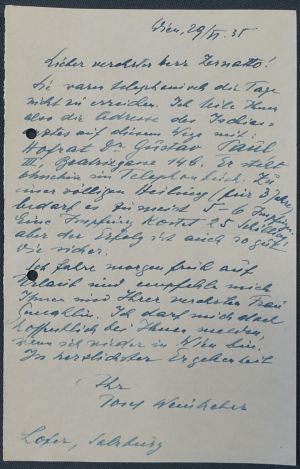 Wien, 29/VI. 35
Lieber verehrter Herr Zernatto!
Sie waren telephonisch die Tage
nicht zu erreichen. Ich teile Ihnen
also die Adresse des Ischias-
arztes auf diesem Wege mit:
Hofrat Dr. Gustav Paul
III, 14 b. Er steht
ohnehin im Telephonbuch. Zu
einer völligen Heilung (für 3 Jahre)
bedarf es zumeist 5-6 Impfungen.
Eine Impfung kostet 25 Schilling
aber der Erfolg ist auch so gut
wie sicher.
Ich fahre morgen früh auf
Urlaub und empfehle mich
Ihnen und Ihrer verehrten Frau
Gemahlin. Ich darf mich doch
hoffentlich bei Ihnen melden,
wenn ich wieder in Wien bin.
In herzlichster Ergebenheit
Ihr
Josef Weinheber
Lofer, Salzburg